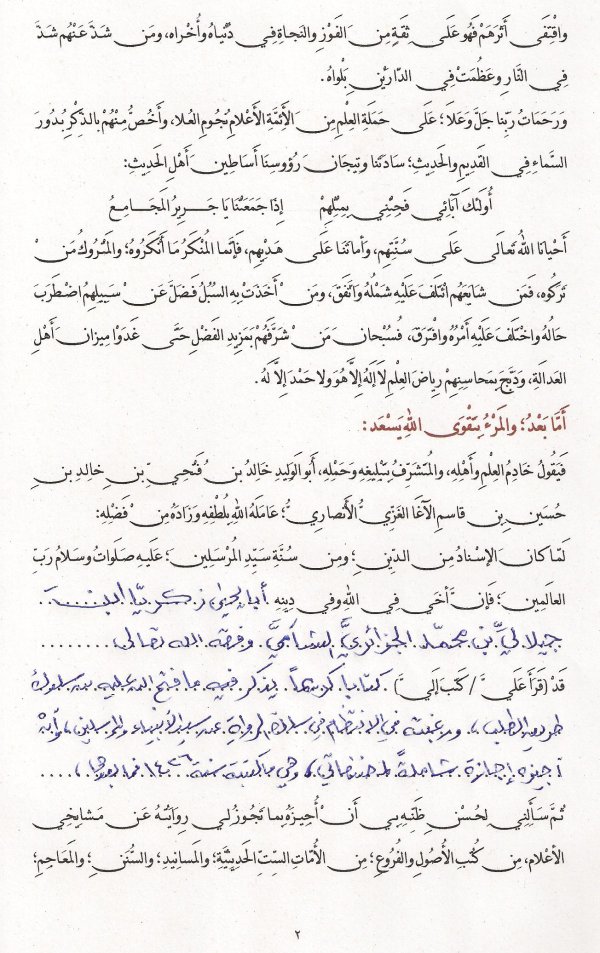 وَاقْتَفَى أَثَرَهُمْ فَهُوَ عَلَى ثِقَةٍ مِنَ الفَوْزِ والنَّجاةِ فِي دُنْياهُ وأُخْراه، ومَن شَذَّ عَنْهُم شَذَّ
فِي النَّارِ وَعَظُمَتْ فِي الدّارَيْنِ بَلْواهُ.
وَرَحَمَاتُ رَبِّنا جَلَّ وَعَلَا؛ عَلَى حَمَلَةِ العِلْمِ مِنَ الأَئِمَّةِ الأَعْلامِ نُجُومِ العُلا، وأَخُصُّ مِنْهُمْ بالذِّكْرِ بُدُورَ
السَّماءِ فِي القَدِيمِ والحَدِيثِ؛ سَادَتَنا وتِيجَانَ رُؤوسِنَا أَسَاطِينَ أَهْلِ الحَدِيثِ:
أُولَئِكَ آبَائِي فَجِئْنِي بِمِثْلِهِمْ إِذَا جَمَعَتْنَا يَا جَرِيرُ المَجَامِعُ
أَحْيانَا اللهُ تَعالَى عَلَى سُنَّتِهِم، وأَماتَنَا عَلَى هَدْيِهِم، فَإِنَّما المُنْكَرُ مَا أَنْكَرُوهُ؛ والمَتْرُوكُ مَنْ
تَرَكُوه، فَمَن شَايَعَهُم ائتَلَفَ عَلَيْهِ شَمْلُهُ واتَّفَقَ، ومَنْ أَخَذَتْ بِهِ السُبُلُ فَضَلَّ عَنْ سَبِيلِهِمْ اضْطَرَبَ
حَالُهُ واخْتَلَفَ عَلَيْهِ أَمْرُهُ وافْتَرَقَ، فَسُبْحَانَ مَنْ شَرَّفَهُمْ بِمَزِيدِ الفَضْلِ حَتَّى غَدَوْا مِيزانَ أَهْلِ
العَدالَةِ، وَدَبَّجَ بِمَحاسِنِهِمْ رِياضَ العِلْمِ لَا إِلَهَ إِلاَّ هُوَ ولا حَمْدَ إِلاَّ لَهُ.
أَمَّا بَعْدُ؛ والمَرْءُ بِتَقْوَى اللهِ يَسْعَد:
فَيَقُولُ خَادِمُ العِلْمِ وأَهْلِهِ، والمُتَشَرِّفُ بِتَبْلِيغِهِ وَحَمْلِهِ، أَبو الوَلِيدِ خَالِدُ بنُ فَتْحِيِّ بنِ خالِدِ بنِ
حُسَين بنِ قاسِمِ الآغَا الغَزِّيُّ الأَنْصارِيُّ؛ عَامَلَهُ اللهِ بِلُطْفِهِ وَزَادَهُ مِنْ فَضْلِهِ:
لَمّا كانَ الإِسْنادُ مِنَ الدّينِ؛ ومِن سُنَّةِ سَيِّدِ المُرْسَلِينَ؛ عَلَيهِ صَلَواتُ وسَلامُ رَبِّ
العالَمِينَ؛ فَإِنَّ أَخَي فِي اللهِ وفي دِينِهِ أبا يحيى زكريّا ابن
جيلاليِّ بن محمّد الجزائريَّ الشاميَّ وفقه الله تعالى
قَدْ (قَرَأَ عَلَيَّ / كَتَبَ إِلَيَّ) كتابا كريما يذكر فيه ما فتح الله عليه من سلوك
طريق الطلب، ورغبته في الانتظام في سلك الرواية عن سيد الأنبياء والمرسلين، وأنْ
أجيزه إجازة شاملةً وهي ما كتبته سنة ١٤٣٦ فما بعدها،
ثُمَّ سَأَلَنِي لِحُسْنِ ظَنِّهِ بِي أَنْ أُجِيزَهُ بِما تَجُوزُ لِي رِوَايَتُهُ عَنْ مَشَايِخِي
الأَعْلام، مِن كُتُبِ الأُصُولِ والفُرُوعِ؛ مِنَ الأُمّاتِ السِتِّ الحَدِيثِيَّةِ؛ والمَسَانِيدِ؛ والسُّنَنِ؛ والمَعَاجِمِ؛
٢